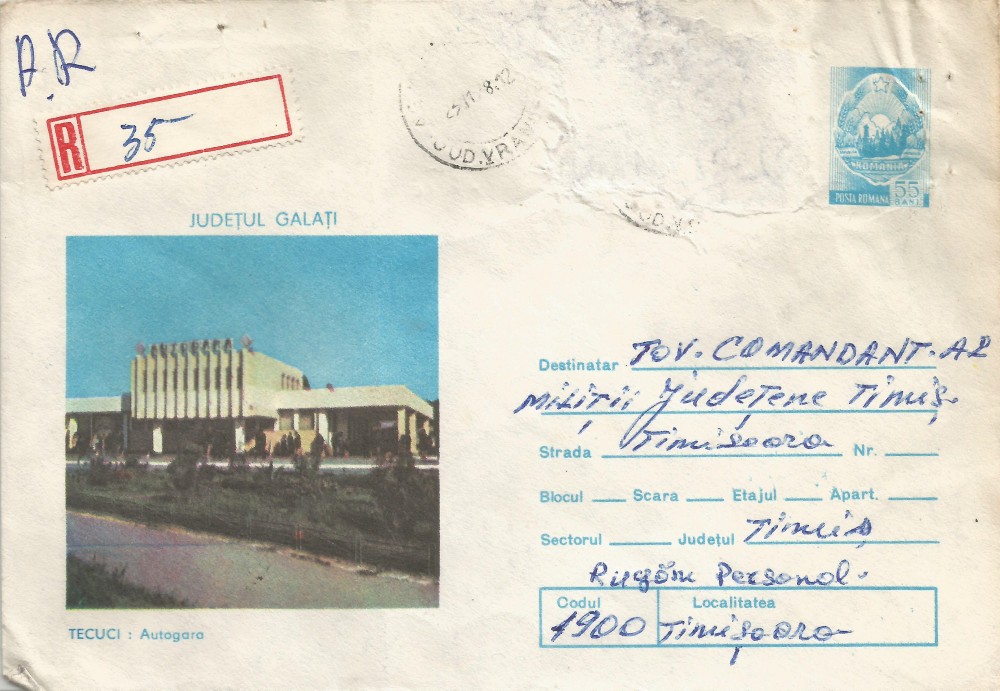 A.R
R 35
JUD. VRAN
8.12
JUD. V
ROMANIA
POSTA ROMANA 55 BANI
JUDEȚUL GALAȚI
AUTOGARA
TECUCI : Autogara
Destinatar TOV. COMANDANT. AL
Miliții Județene Timiș.
Strada Timișoara Nr.
Blocul Scara Etajul Apart.
Sectorul Județul Timiș
Rugăm Personal.
Codul Localitatea
1900 Timișoara